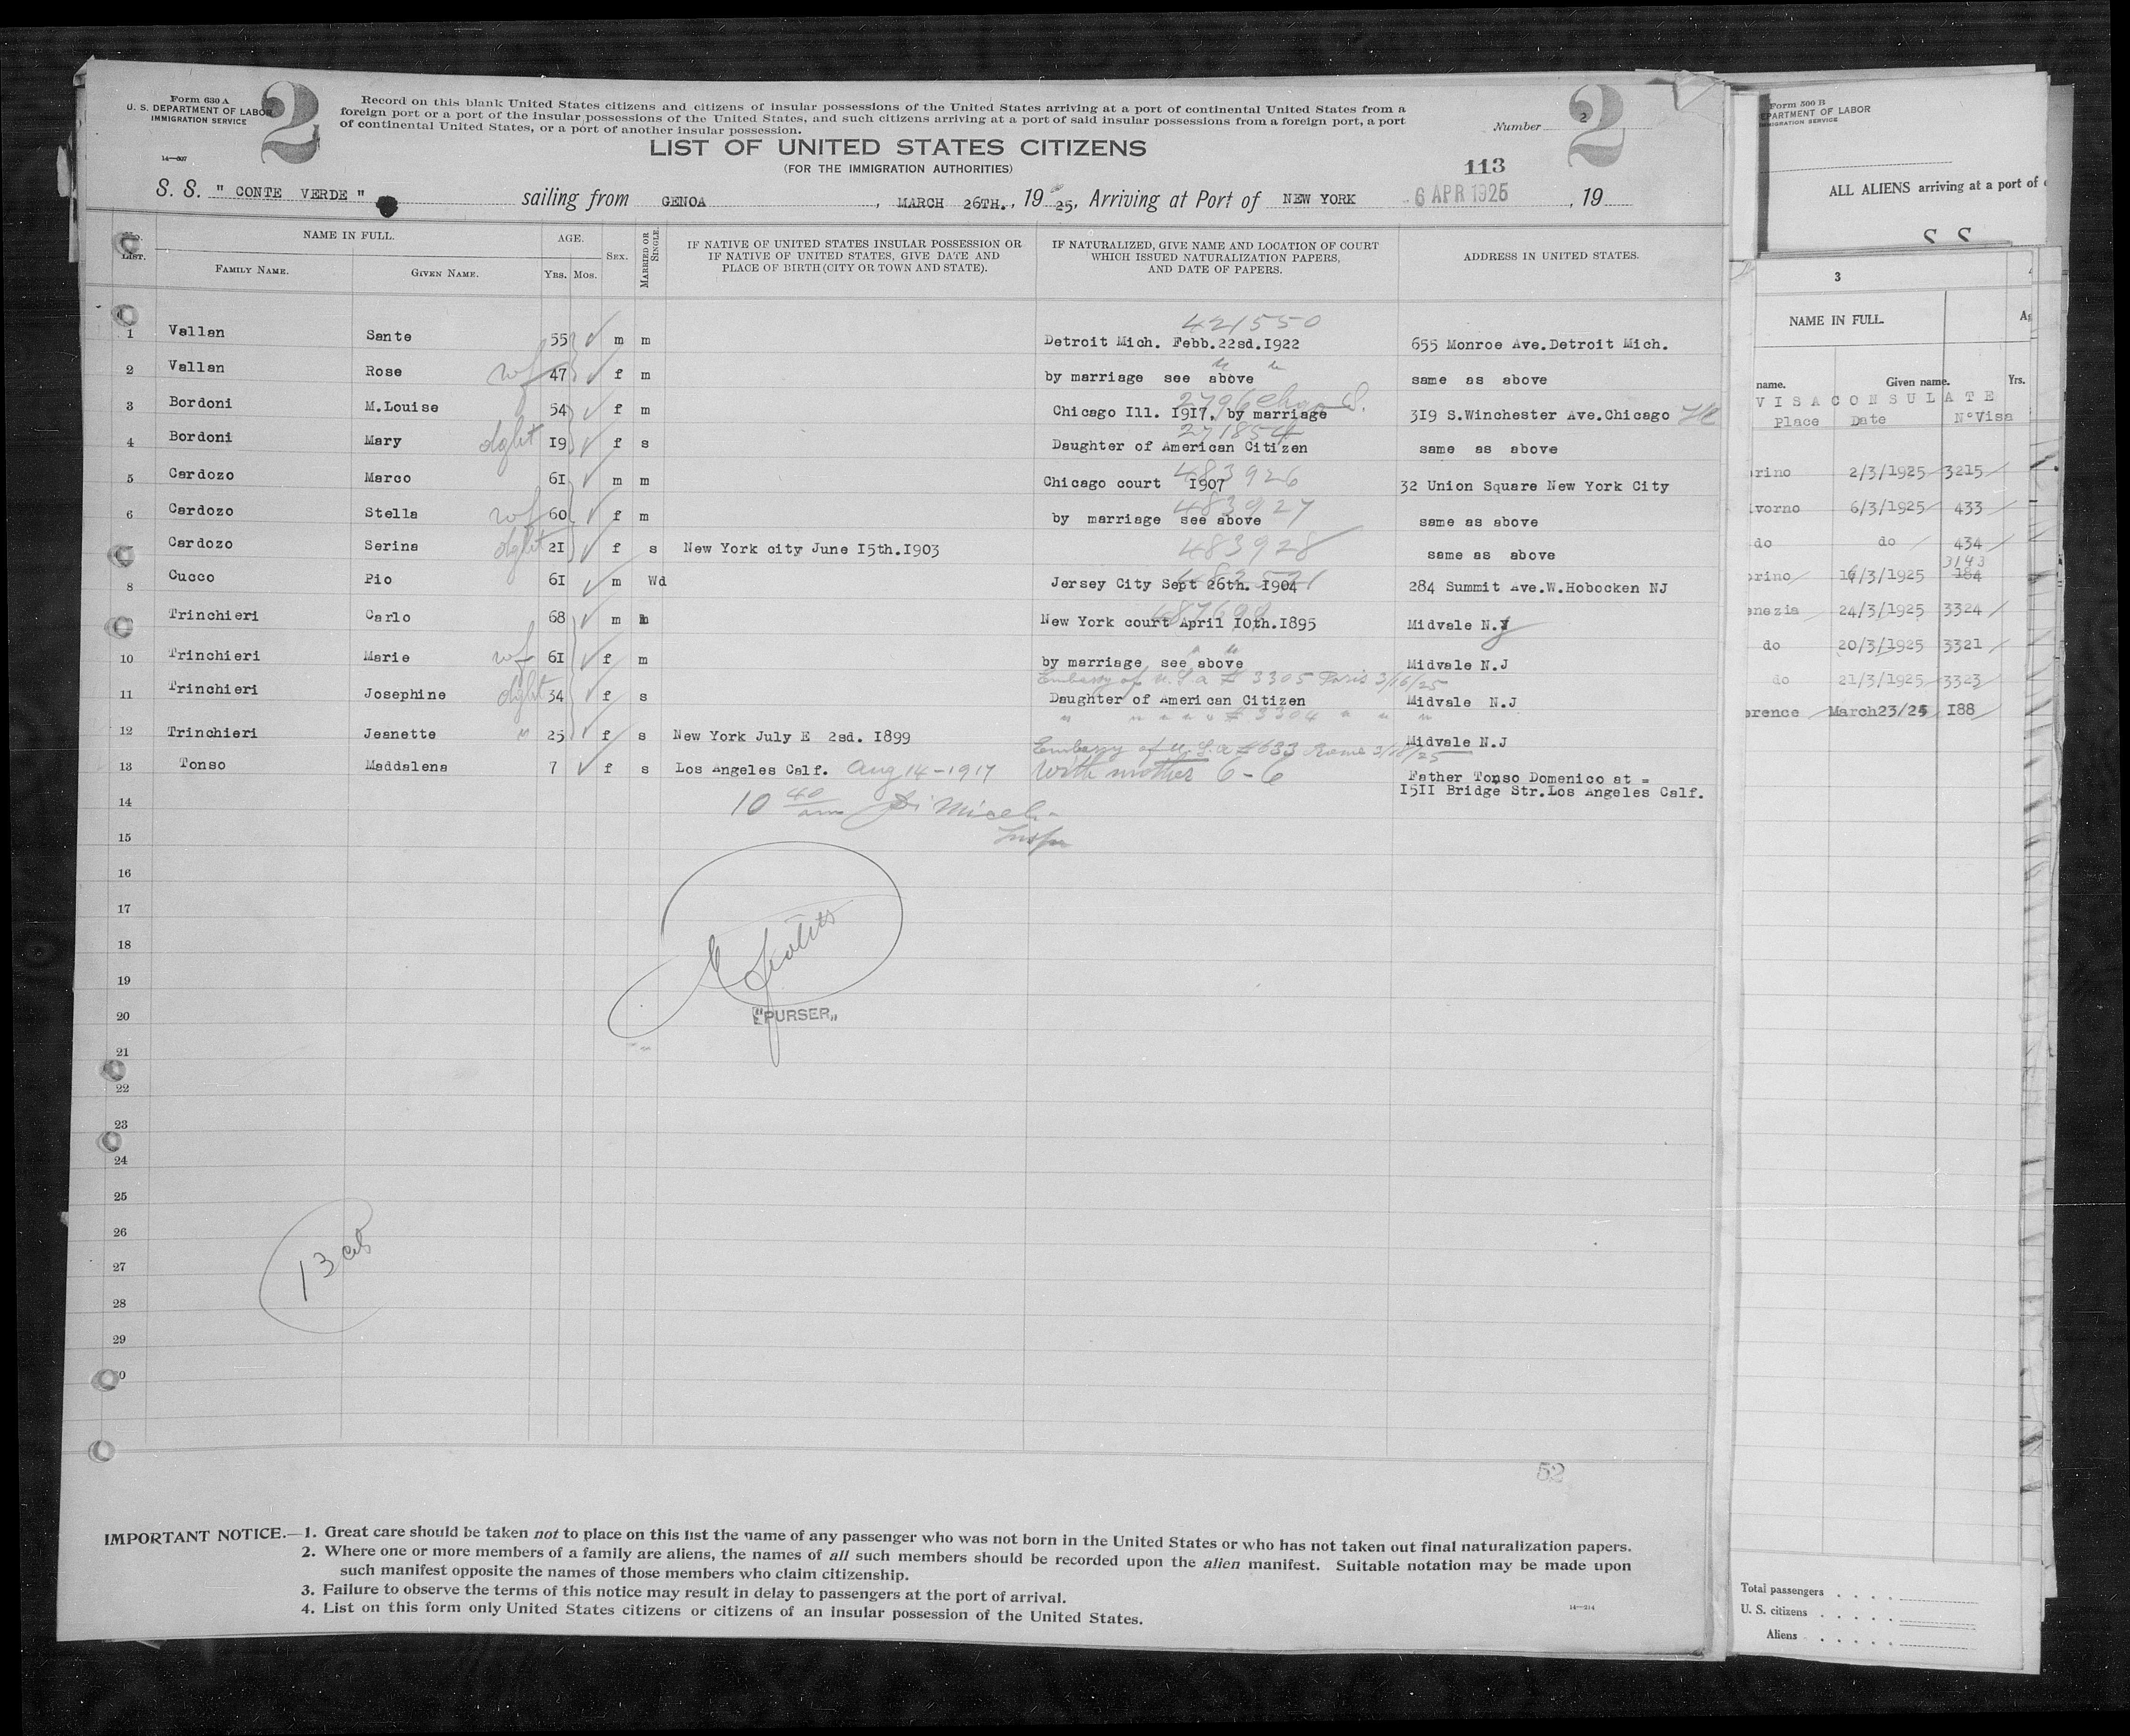 Form 630 A
U. S. DEPARTMENT OF LABOR
IMMIGRATION SERVICE
14—607
2
Record on this blank United States citizens and citizens of insular possessions of the United States arriving at a port of continental United States from a
foreign port or a port of the insular possessions of the United States, and such citizens arriving at a port of said insular possessions from a foreign port, a port
of continental United States, or a port of another insular possession.
Number 2
2
LIST OF UNITED STATES CITIZENS
(FOR THE IMMIGRATION AUTHORITIES)
113
S. S. " CONTE VERDE " sailing from GENOA , MARCH 26TH. , 19 25, Arriving at Port of NEW YORK 6 APR 1925 , 19
No. LIST. NAME IN FULL. AGE. SEX. MARRIED OR SINGLE. IF NATIVE OF UNITED STATES INSULAR POSSESSION OR IF NATIVE OF UNITED STATES, GIVE DATE AND PLACE OF BIRTH (CITY OR TOWN AND STATE). IF NATURALIZED, GIVE NAME AND LOCATION OF COURT WHICH ISSUED NATURALIZATION PAPERS, AND DATE OF PAPERS. ADDRESS IN UNITED STATES.
FAMILY NAME. GIVEN NAME. YRS. MOS.
421550
1 Vallan Sante 55 m m Detroit Mich. Febb.22sd.I922 655 Monroe Ave.Detroit Mich.
2 Vallan Rose wf 47 f m by marriage see above same as above
3 Bordoni M.Louise 54 f m Chicago Ill. I9I7. by marriage 3I9 S.Winchester Ave.Chicago Ill
271854
4 Bordoni Mary dght I9 f s Daughter of American Citizen same as above
483926
5 Cardozo Marco 6I m m Chicago court I907 32 Union Square New York City
483927
6 Cardozo Stella wf 60 f m by marriage see above same as above
7 Cardozo Serina dght 2I f s New York city June I5th.I903 483928 same as above
8 Cucco Pio 6I m Wd Jersey City Sept 26th. I904 284 Summit Ave.W.Hobocken NJ
9 Trinchieri Carlo 68 m m New York court April I0th.I895 Midvale N.J
10 Trinchieri Marie wf 6I f m by marriage see above Midvale N.J
Embassy of U.S.A # 3305 Paris 3/16/25
11 Trinchieri Josephine dght 34 f s Daughter of American Citizen Midvale N.J
" " " " " # 3304 " " "
12 Trinchieri Jeanette " 25 f s New York July E 2sd. I899 Midvale N.J
Embassy of U.S.A #633 Rome 3/18/25
13 Tonso Maddalena 7 f s Los Angeles Calf. Aug 14-1917 With mother 6-6 Father Tonso Domenico at =
I5II Bridge Str.Los Angeles Calf.
14 10 40 am Di Miceli
Inspr
15
16
17
18
19
20 "PURSER„
21
22
23
24
25
26
27
28
29
30
13 cit
52
IMPORTANT NOTICE.—1. Great care should be taken not to place on this list the name of any passenger who was not born in the United States or who has not taken out final naturalization papers.
2. Where one or more members of a family are aliens, the names of all such members should be recorded upon the alien manifest. Suitable notation may be made upon
such manifest opposite the names of those members who claim citizenship.
3. Failure to observe the terms of this notice may result in delay to passengers at the port of arrival.
4. List on this form only United States citizens or citizens of an insular possession of the United States.
14—214
Form 500 B
EPARTMENT OF LABOR
MIGRATION SERVICE
ALL ALIENS arriving at a port of
S S
3
NAME IN FULL. Ag
name. Given name. Yrs.
V I S A C O N S U L A T E
Place Date N°Visa
rino 2/3/1925 3215
vorno 6/3/1925 433
do do 434
3143
rino 16/3/1925 184
nezia 24/3/1925 3324
do 20/3/1925 3321
do 21/3/1925 3323
rence March23/25 I88
Total passengers . . . .
U. S. citizens . . . . .
Aliens . . . . .